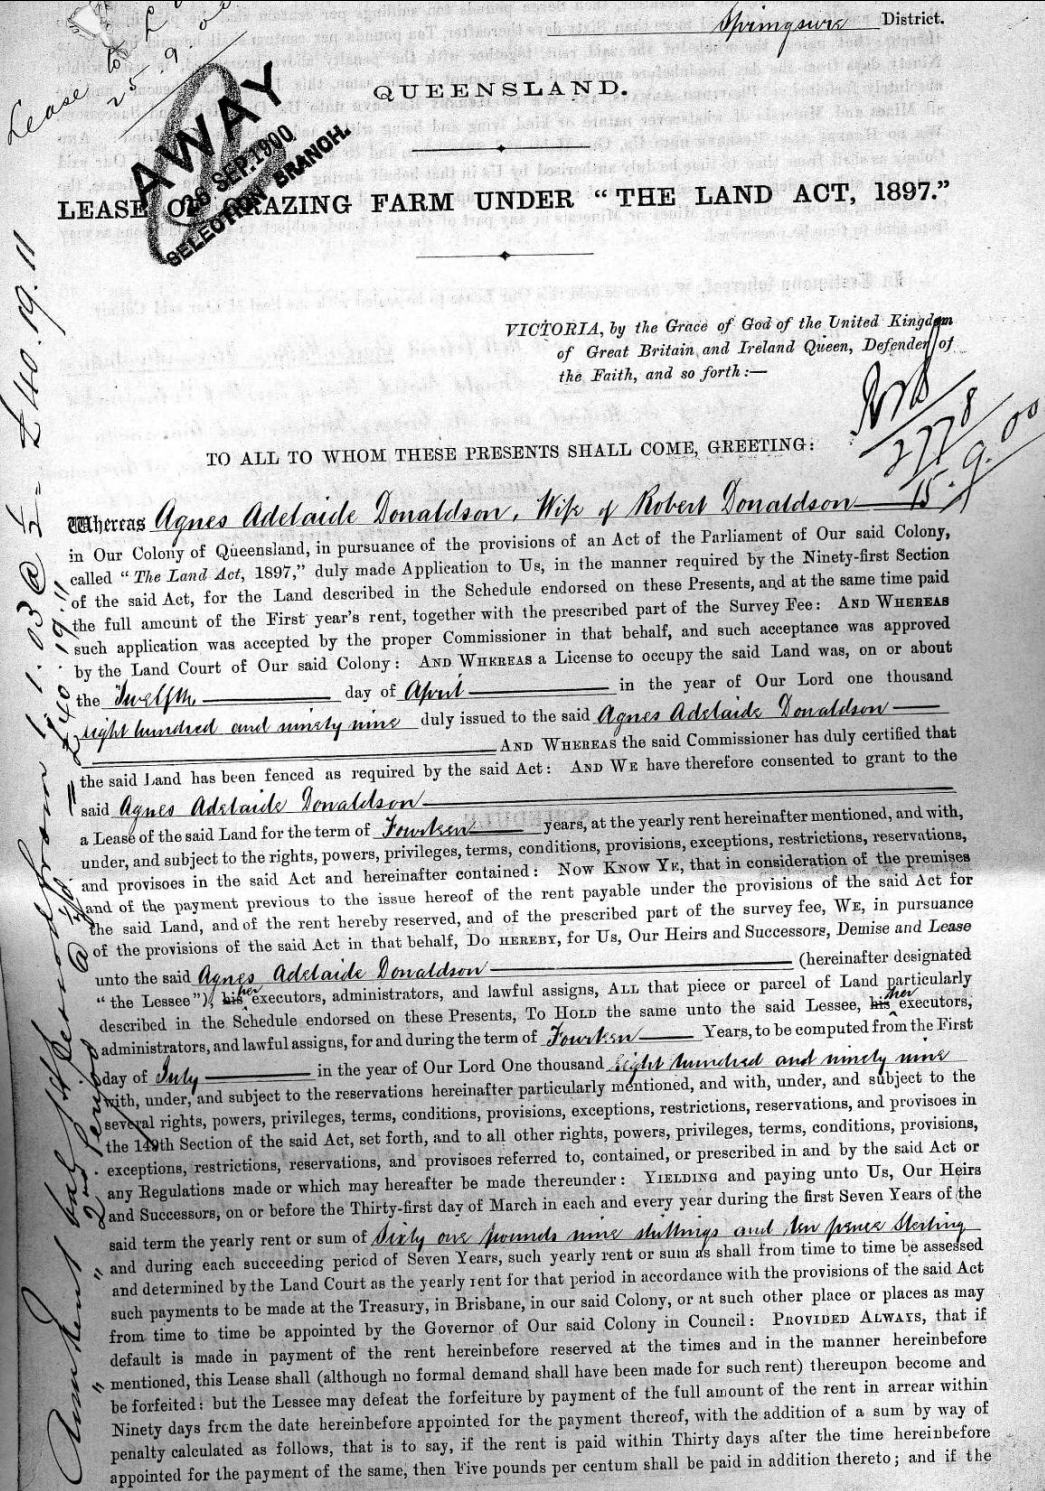 Springsure District.
Lease to L
25.9.00
QUEENSLAND.
AWAY
26 SEP. 1900
SELECTION BRANCH.
LEASE OF GRAZING FARM UNDER “THE LAND ACT, 1897.”
VICTORIA, by the Grace of God of the United Kingdom
of Great Britain and Ireland Queen, Defender of
the Faith, and so forth:—
2778
15.9.00
TO ALL TO WHOM THESE PRESENTS SHALL COME, GREETING:
Whereas Agnes Adelaide Donaldson, Wife of Robert Donaldson
in Our Colony of Queensland, in pursuance of the provisions of an Act of the Parliament of Our said Colony,
called “The Land Act, 1897,” duly made Application to Us, in the manner required by the Ninety-first Section
of the said Act, for the Land described in the Schedule endorsed on these Presents, and at the same time paid
the full amount of the First year's rent, together with the prescribed part of the Survey Fee: AND WHEREAS
such application was accepted by the proper Commissioner in that behalf, and such acceptance was approved
by the Land Court of Our said Colony: AND WHEREAS a License to occupy the said Land was, on or about
the Twelfth day of April in the year of Our Lord one thousand
eight hundred and ninety nine duly issued to the said Agnes Adelaide Donaldson
AND WHEREAS the said Commissioner has duly certified that
the said Land has been fenced as required by the said Act: AND WE have therefore consented to grant to the
said Agnes Adelaide Donaldson
a Lease of the said Land for the term of Fourteen years, at the yearly rent hereinafter mentioned, and with,
under, and subject to the rights, powers, privileges, terms, conditions, provisions, exceptions, restrictions, reservations,
and provisoes in the said Act and hereinafter contained: NOW KNOW YE, that in consideration of the premises
and of the payment previous to the issue hereof of the rent payable under the provisions of the said Act for
the said Land, and of the rent hereby reserved, and of the prescribed part of the survey fee, WE, in pursuance
of the provisions of the said Act in that behalf, DO HEREBY, for Us, Our Heirs and Successors, Demise and Lease
unto the said Agnes Adelaide Donaldson (hereinafter designated
“the Lessee”), his her executors, administrators, and lawful assigns, ALL that piece or parcel of Land particularly
described in the Schedule endorsed on these Presents, TO HOLD the same unto the said Lessee, his her executors,
administrators, and lawful assigns, for and during the term of Fourteen Years, to be computed from the First
day of July in the year of Our Lord One thousand eight hundred and ninety nine
with, under, and subject to the reservations hereinafter particularly mentioned, and with, under, and subject to the
several rights, powers, privileges, terms, conditions, provisions, exceptions, restrictions, reservations, and provisoes in
the 149th Section of the said Act, set forth, and to all other rights, powers, privileges, terms, conditions, provisions,
exceptions, restrictions, reservations, and provisoes referred to, contained, or prescribed in and by the said Act or
any Regulations made or which may hereafter be made thereunder: YIELDING and paying unto Us, Our Heirs
and Successors, on or before the Thirty-first day of March in each and every year during the first Seven Years of the
said term the yearly rent or sum of Sixty one pounds nine shillings and ten pence Sterling
and during each succeeding period of Seven Years, such yearly rent or sum as shall from time to time be assessed
and determined by the Land Court as the yearly rent for that period in accordance with the provisions of the said Act
such payments to be made at the Treasury, in Brisbane, in our said Colony, or at such other place or places as may
from time to time be appointed by the Governor of Our said Colony in Council: PROVIDED ALWAYS, that if
default is made in payment of the rent hereinbefore reserved at the times and in the manner hereinbefore
mentioned, this Lease shall (although no formal demand shall have been made for such rent) thereupon become and
be forfeited: but the Lessee may defeat the forfeiture by payment of the full amount of the rent in arrear within
Ninety days from the date hereinbefore appointed for the payment thereof, with the addition of a sum by way of
penalty calculated as follows, that is to say, if the rent is paid within Thirty days after the time hereinbefore
appointed for the payment of the same, then Five pounds per centum shall be paid in addition thereto; and if the
Rent bal 1st Period from 1.1.03 @ £40.19.11
2nd Period @ £40.19.11